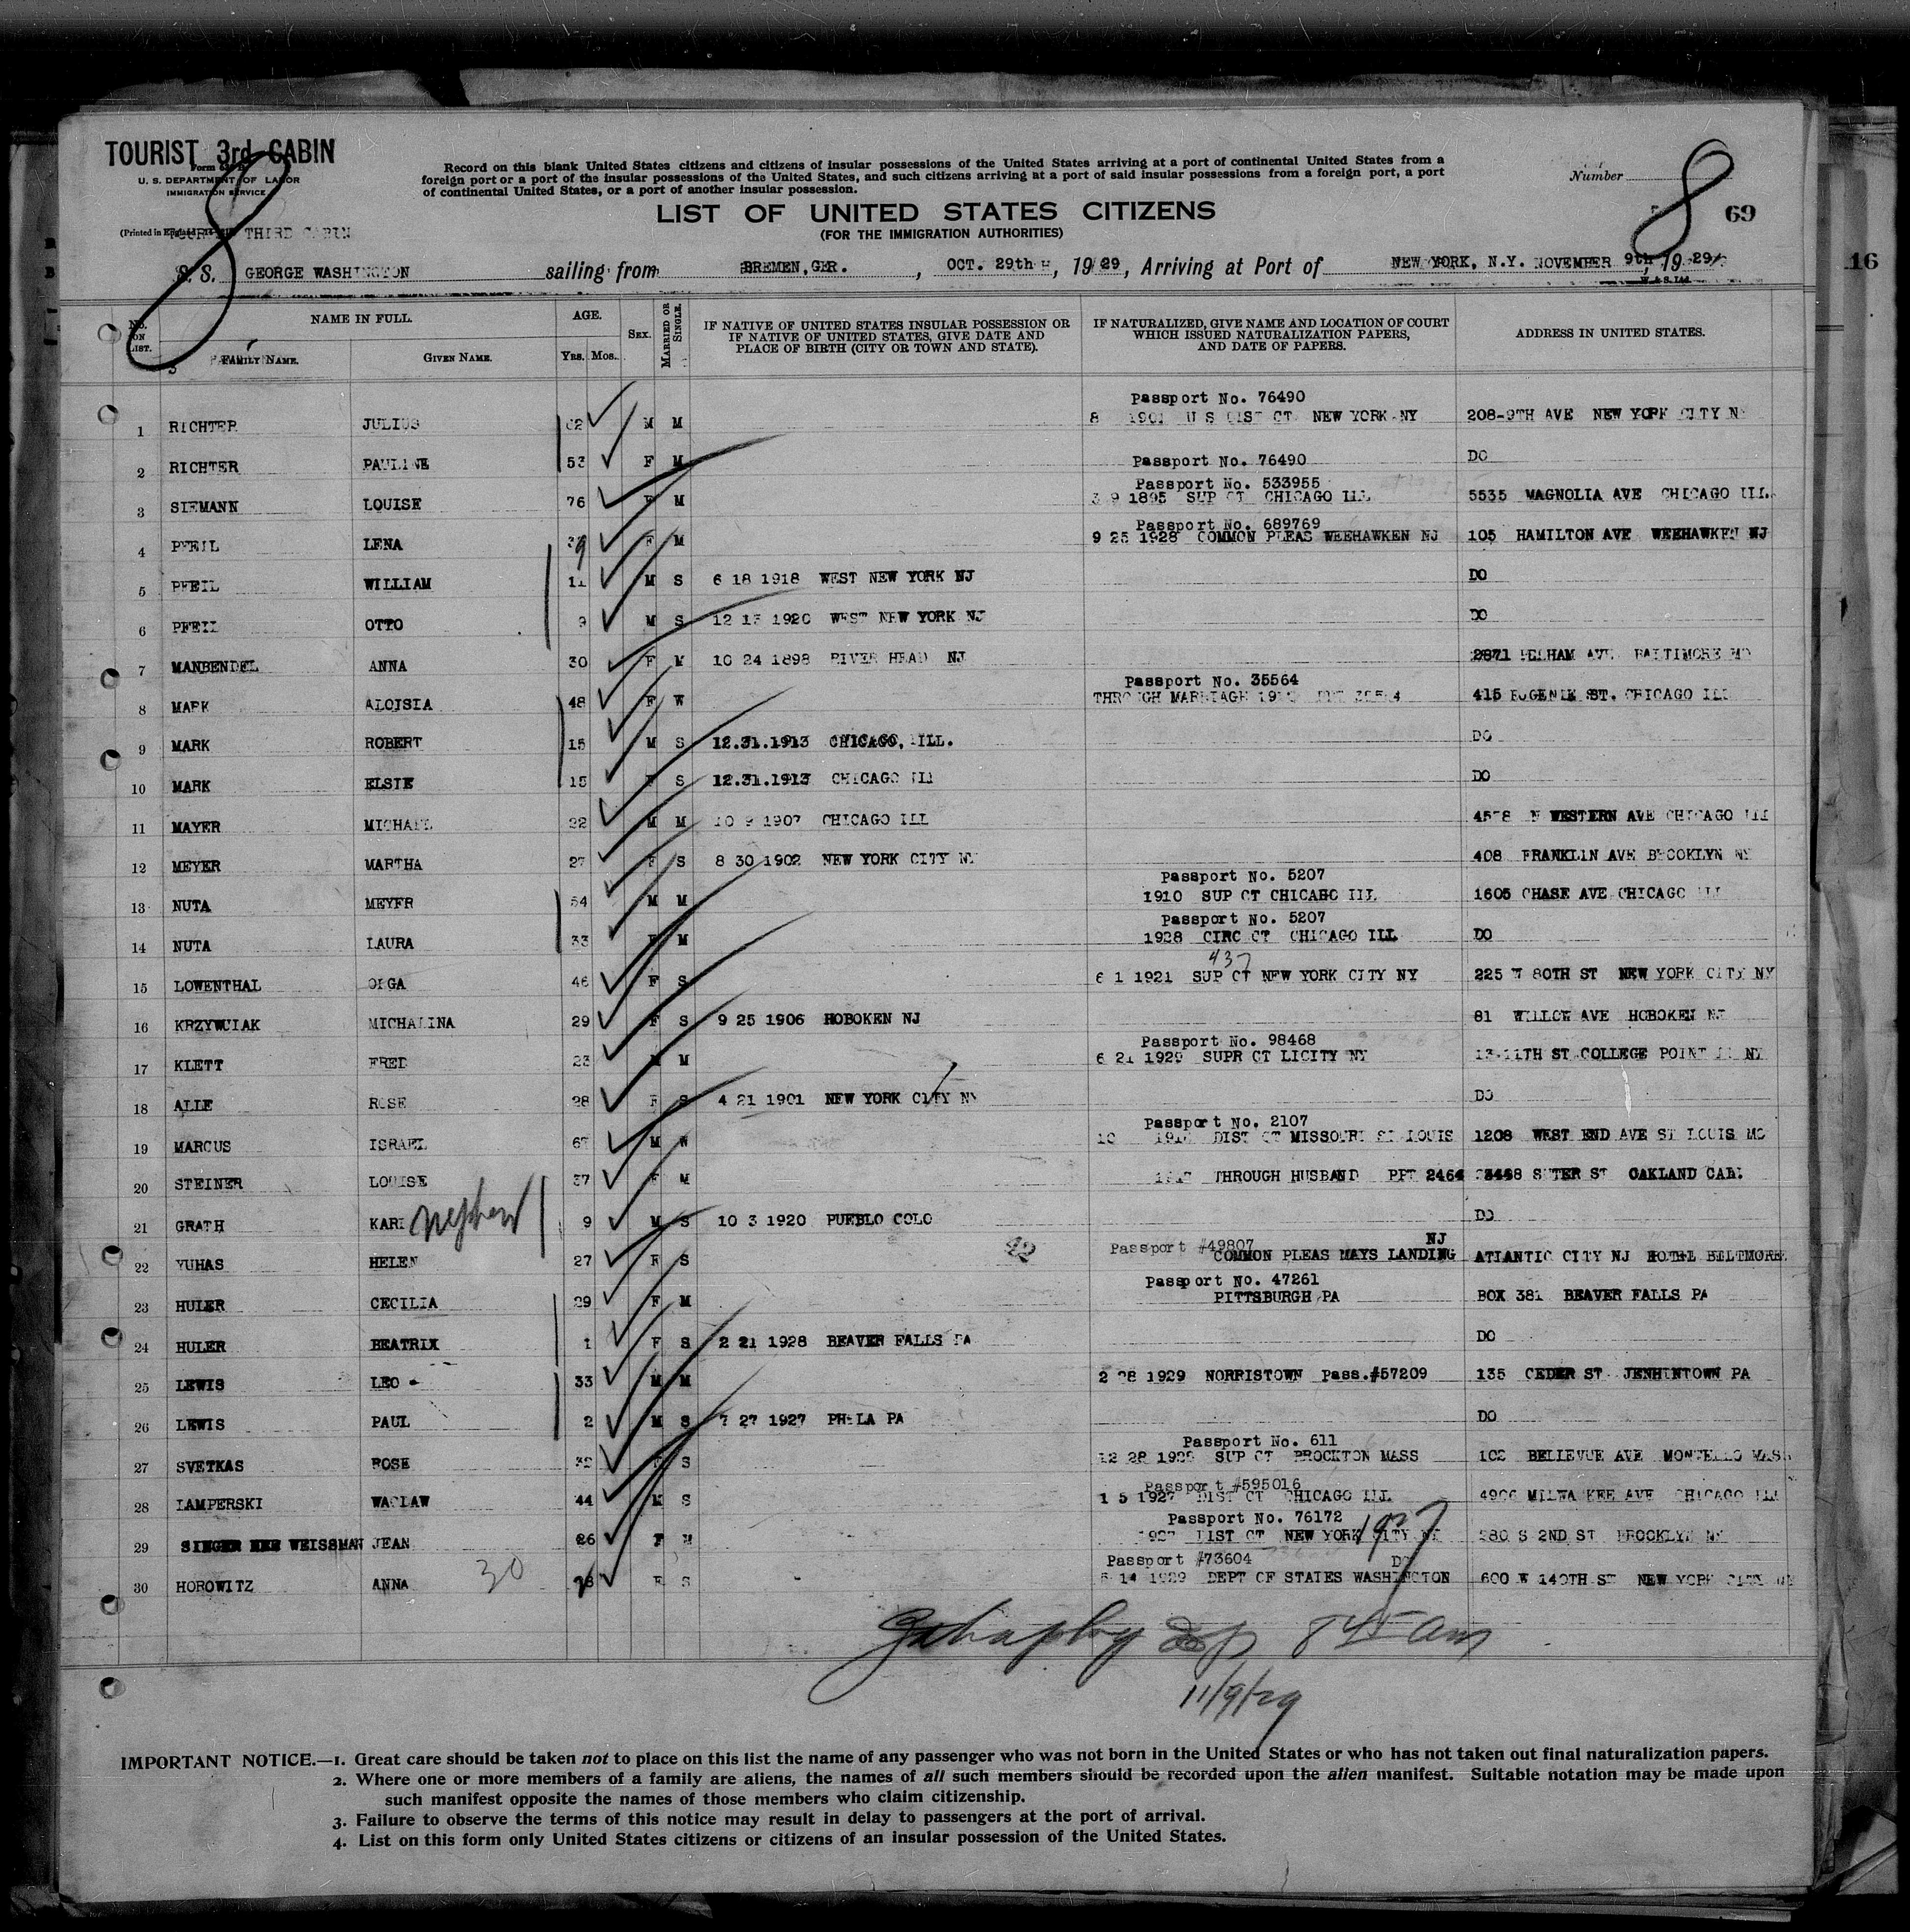 TOURIST 3rd CABIN
U. S. DEPARTMENT OF LABOR
IMMIGRATION SERVICE
Record on this blank United States citizens and citizens of insular possessions of the United States arriving at a port of continental United States from a
foreign port or a port of the insular possessions of the United States, and such citizens arriving at a port of said insular possessions from a foreign port, a port
of continental United States, or a port of another insular possession.
Number
8
8
69
LIST OF UNITED STATES CITIZENS
(FOR THE IMMIGRATION AUTHORITIES)
(Printed in England THIRD CABIN
S. S. GEORGE WASHINGTON sailing from BREMEN, GER. , OCT. 29th , 1929, Arriving at Port of NEW YORK, N.Y. NOVEMBER 9th, 1929
16
No. ON LIST. NAME IN FULL. AGE. SEX. MARRIED OR SINGLE. IF NATIVE OF UNITED STATES INSULAR POSSESSION OR IF NATIVE OF UNITED STATES, GIVE DATE AND PLACE OF BIRTH (CITY OR TOWN AND STATE). IF NATURALIZED, GIVE NAME AND LOCATION OF COURT WHICH ISSUED NATURALIZATION PAPERS, AND DATE OF PAPERS. ADDRESS IN UNITED STATES.
FAMILY NAME. GIVEN NAME. YRS. MOS.
Passport No. 76490
1 RICHTER JULIUS 62 M M 8 1901 U S DIST CT NEW YORK NY 208-9TH AVE NEW YORK CITY NY
2 RICHTER PAULINE 53 F M Passport No. 76490 DO
Passport No. 533955
3 SIEMANN LOUISE 76 F M 3 9 1895 SUP CT CHICAGO ILL 5535 MAGNOLIA AVE CHICAGO ILL.
Passport No. 689769
4 PFEIL LENA 39 F M 9 25 1928 COMMON PLEAS WEEHAWKEN NJ 105 HAMILTON AVE WEEHAWKEN NJ
5 PFEIL WILLIAM 11 M S 6 18 1918 WEST NEW YORK NJ DO
6 PFEIL OTTO 9 M S 12 13 1920 WEST NEW YORK NJ DO
7 MANBENDEL ANNA 30 F M 10 24 1898 RIVER HEAD NJ 2871 PELHAM AVE BALTIMORE MD
Passport No. 35564
8 MARK ALOISIA 48 F W THROUGH MARRIAGE 415 EUGENIE ST. CHICAGO ILL
9 MARK ROBERT 15 M S 12.31.1913 CHICAGO, ILL. DO
10 MARK ELSIE 15 F S 12.31.1913 CHICAGO ILL DO
11 MAYER MICHAEL 22 M M 10 9 1907 CHICAGO ILL N WESTERN AVE CHICAGO ILL
12 MEYER MARTHA 27 F S 8 30 1902 NEW YORK CITY NY 408 FRANKLIN AVE BROOKLYN NY
Passport No. 5207
13 NUTA MEYER 54 M M 1910 SUP CT CHICAGO ILL 1605 CHASE AVE CHICAGO ILL
Passport No. 5207
14 NUTA LAURA 33 F M 1928 CIRC CT CHICAGO ILL DO
437
15 LOWENTHAL OLGA 46 F S 6 1 1921 SUP CT NEW YORK CITY NY 225 W 80TH ST NEW YORK CITY NY
16 KRZYWCIAK MICHALINA 29 F S 9 25 1906 HOBOKEN NJ 81 WILLOW AVE HOBOKEN NJ
Passport No. 98468
17 KLETT FRED 23 M M 6 21 1929 SUPR CT LICITY NY 13-11TH ST COLLEGE POINT LI NY
18 ALLE ROSE 28 F S 4 21 1901 NEW YORK CITY NY DO
Passport No. 2107
19 MARCUS ISRAEL M W 10 DIST CT MISSOURI ST LOUIS 1208 WEST END AVE ST LOUIS MO
20 STEINER LOUISE 37 F M THROUGH HUSBAND PPT 2464 3448 SUTER ST OAKLAND CAL.
21 GRATH KARL nephew 9 M S 10 3 1920 PUEBLO COLO DO
42
Passport #49807 NJ
22 YUHAS HELEN 27 F S COMMON PLEAS MAYS LANDING ATLANTIC CITY NJ HOTEL BILTMORE
Passport No. 47261
23 HULER CECILIA 29 F M PITTSBURGH PA BOX 381 BEAVER FALLS PA
24 HULER BEATRIX 1 F S 2 21 1928 BEAVER FALLS PA DO
25 LEWIS LEO 33 M M 2 28 1929 NORRISTOWN Pass.#57209 135 CEDER ST JENHINTOWN PA
26 LEWIS PAUL 2 M S 7 27 1927 PHILA PA DO
Passport No. 611
27 SVETKAS ROSE F S 12 28 1928 SUP CT BROCKTON MASS 102 BELLEVUE AVE MONTELLO MASS
Passport #595016
28 LAMPERSKI WACLAW 44 M S 1 5 1927 DIST CT CHICAGO ILL 4906 MILWAUKEE AVE CHICAGO ILL
Passport No. 76172
29 SINGER NEE WEISSMAN JEAN 26 F M 1927 DIST CT NEW YORK CITY NY 1927 280 S 2ND ST BROOKLYN NY
Passport #73604 DC
30 HOROWITZ ANNA 30 28 F S 5 14 1929 DEPT OF STATES WASHINGTON 600 W 140TH ST NEW YORK CITY NY
845 am
11/9/29
IMPORTANT NOTICE.—1. Great care should be taken not to place on this list the name of any passenger who was not born in the United States or who has not taken out final naturalization papers.
2. Where one or more members of a family are aliens, the names of all such members should be recorded upon the alien manifest. Suitable notation may be made upon
such manifest opposite the names of those members who claim citizenship.
3. Failure to observe the terms of this notice may result in delay to passengers at the port of arrival.
4. List on this form only United States citizens or citizens of an insular possession of the United States.